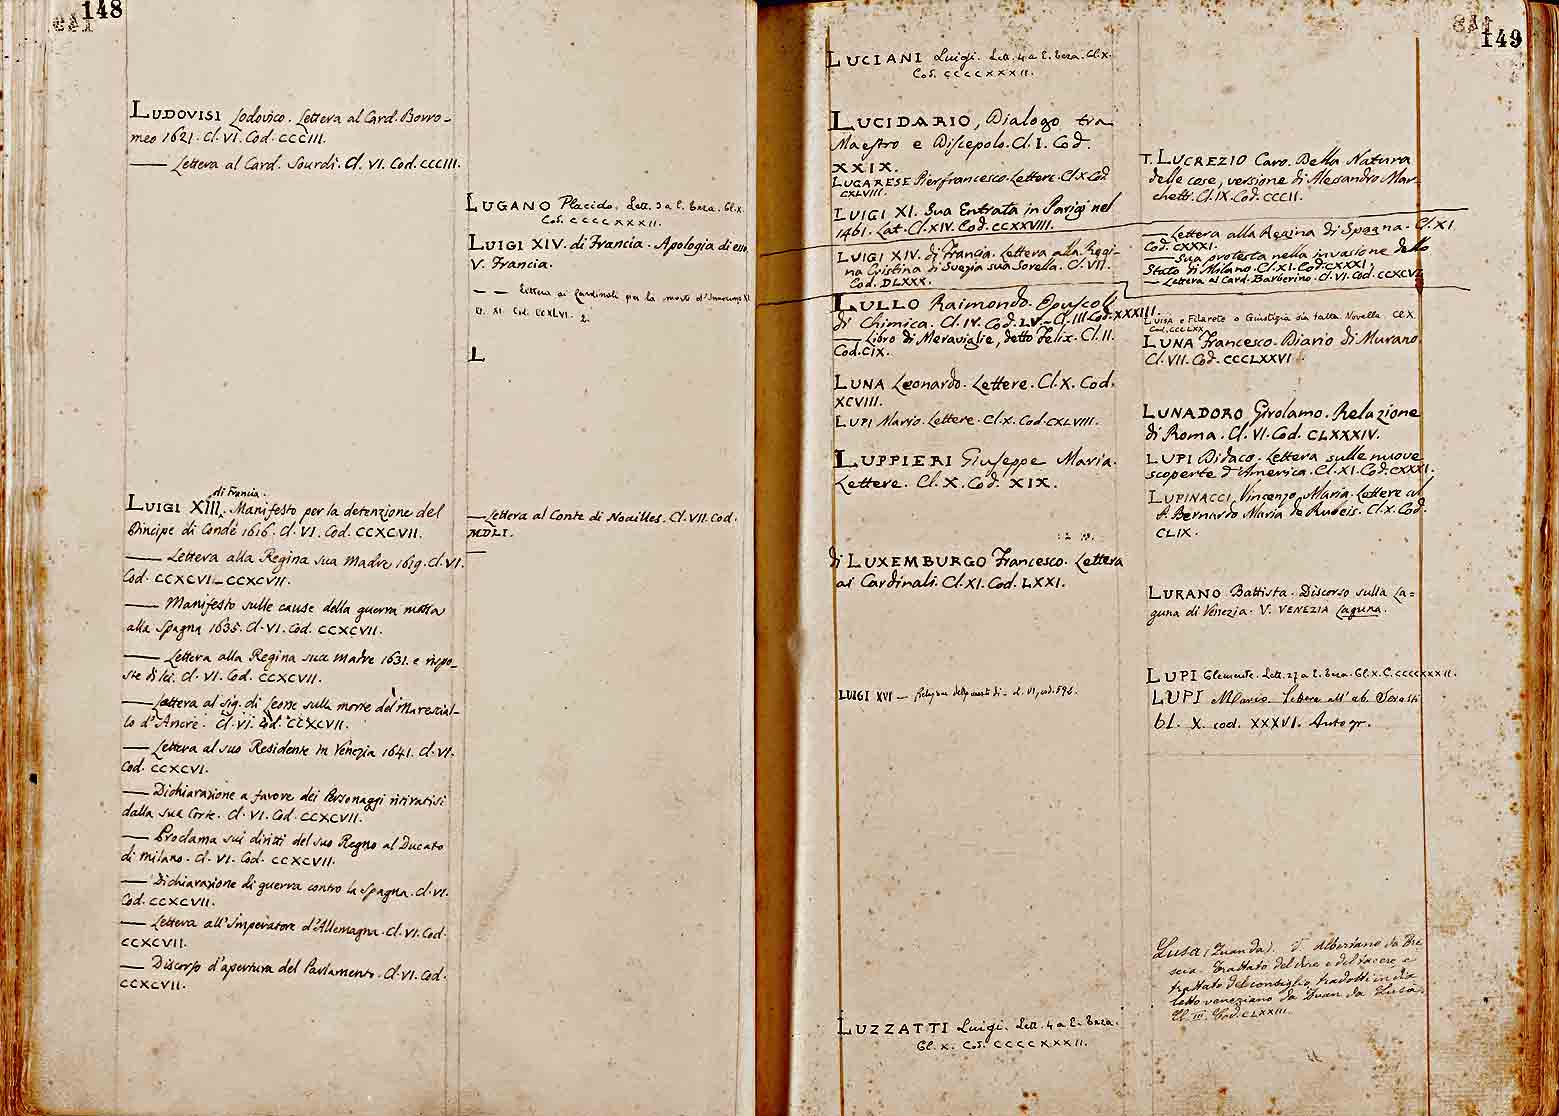 148
LUDOVISI Lodovico. Lettera al Card. Borro-
meo 1621. Cl. VI. Cod. CCCIII.
— Lettera al Card. Sourdi. Cl. VI. Cod. CCCIII.
di Francia.
LUIGI XIII. Manifesto per la detenzione del
Principe di Condé 1616. Cl. VI. Cod. CCXCVII.
— Lettera alla Regina sua Madre 1619. Cl. VI.
Cod. CCXCVI–CCXCVII.
— Manifesto sulle cause della guerra mossa
alla Spagna 1635. Cl. VI. Cod. CCXCVII.
— Lettera alla Regina sua Madre 1631. e rispo-
ste di lei. Cl. VI. Cod. CCXCVII.
— Lettera al Sig. di Leone sulla morte del Marescial-
lo d'Ancre. Cl. VI. Cod. CCXCVII.
— Lettera al suo Residente in Venezia 1641. Cl. VI.
Cod. CCXCVI.
— Dichiarazione a favore dei Personaggi ritiratisi
dalla sua Corte. Cl. VI. Cod. CCXCVII.
— Proclama sui diritti del suo Regno al Ducato
di Milano. Cl. VI. Cod. CCXCVII.
— Dichiarazione di guerra contro la Spagna. Cl. VI.
Cod. CCXCVII.
— Lettera all'Imperatore d'Allemagna. Cl. VI. Cod.
CCXCVII.
— Discorso d'apertura del Parlamento. Cl. VI. Cod.
CCXCVII.
LUGANO Placido. Lett. 3 a E. Teza. Cl. X.
Cod. CCCCXXXII.
LUIGI XIV. di Francia. Apologia di esso
V. Francia.
— — Lettera ai Cardinali per la morte d'Innocenzo XI
Cl. XI. Cod. CCXLVI. 2.
L
— Lettera al Conte di Noailles. Cl. VII. Cod.
MDLI.
—
149
LUCIANI Luigi. Lett. 4 a E. Teza. Cl. X.
Cod. CCCCXXXII.
LUCIDARIO, Dialogo tra
Maestro e Discepolo. Cl. I. Cod.
XXIX.
LUGARESE Pierfrancesco. Lettere. Cl. X. Cod.
CXLVIII.
LUIGI XI. Sua Entrata in Parigi nel
1461. Lat. Cl. XIV. Cod. CCXXVIII.
LUIGI XIV. di Francia. Lettera alla Regi-
na Cristina di Svezia sua Sorella. Cl. VII.
Cod. DLXXX.
LULLO Raimondo. Opuscoli
di Chimica. Cl. IV. Cod. LV. – Cl. III Cod. XXXIII.
— Libro di Meraviglie, detto Felix. Cl. II.
Cod. CIX.
LUNA Leonardo. Lettere. Cl. X. Cod.
XCVIII.
LUPI Mario. Lettere. Cl. X. Cod. CXLVIII.
LUPPIERI Giuseppe Maria.
Lettere. Cl. X. Cod. XIX.
di LUXEMBURGO Francesco. Lettera
ai Cardinali. Cl. XI. Cod. LXXI.
LUIGI XVI — Relazione della morte di – cl. VI, cod. 596.
LUZZATTI Luigi. Lett. 4 a E. Teza.
Cl. X. Cod. CCCCXXXII.
T. LUCREZIO Caro. Della Natura
delle cose, versione di Alessandro Mar-
chetti. Cl. IX. Cod. CCCII.
— Lettera alla Regina di Spagna. Cl. XI
Cod. CXXXI.
— Sua protesta nella invasione dello
Stato di Milano. Cl. XI. Cod. CXXXI.
— Lettera al Card. Barberino. Cl. VI. Cod. CCXCVII.
LUISA e Filareto o Giustizia sia fatta. Novella. Cl. X.
Cod. CCCLXX
LUNA Francesco. Diario di Murano.
Cl. VII. Cod. CCCLXXVI.
LUNADORO Girolamo. Relazione
di Roma. Cl. VI. Cod. CLXXXIV.
LUPI Didaco. Lettera sulle nuove
scoperte d'America. Cl. XI. Cod. CXXXI.
LUPINACCI Vincenzo Maria. Lettere al
P. Bernardo Maria de Rubeis. Cl. X. Cod.
CLIX.
LURANO Battista. Discorso sulla La=
guna di Venezia. V. VENEZIA Laguna.
LUPI Clemente. Lett. 27 a E. Teza. Cl. X. C. CCCCXXXII.
LUPI Mario Lettere all'ab. Serassi
Cl. X. cod. XXXVI. Autogr.
Lusa (Zuan da). V. Albertano da Bre
scia. Trattato del dire e del tacere, e
trattato del consiglio, tradotti in dia
letto veneziano da Zuan da Lusa.
Cl. III. Cod. CLXXIII.